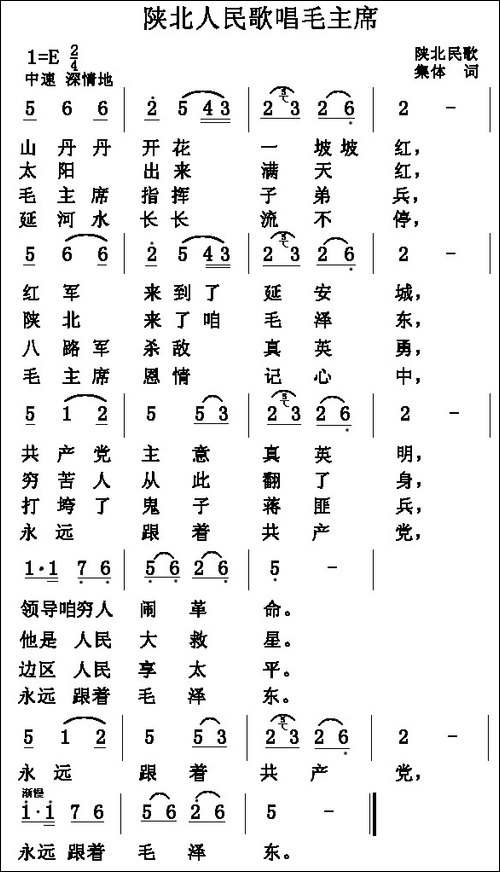 陕北人民歌唱毛主席
1=E 2/4
陕北民歌
中速 深情地
集体 词
5 6 6 | 2 5 4 3 | 2 3 2 6 | 2 - |
山丹丹 开花 一 坡坡 红，
太阳 出来 满天 红，
毛主席 指挥 子弟 兵，
延河水 长长 流不 停，
5 6 6 | 2 5 4 3 | 2 3 2 6 | 2 - |
红军 来到了 延安 城，
陕北 来了咱 毛泽 东，
八路军 杀敌 真英 勇，
毛主席 恩情 记心 中，
5 1 2 | 5 5 3 | 2 3 2 6 | 2 - |
共产党 主意 真英 明，
穷苦人 从此 翻了 身，
打垮了 鬼子 蒋匪 兵，
永远 跟着 共产 党，
1·1 7 6 | 5 6 2 6 | 5 - |
领导咱穷人 闹革 命。
他是 人民 大救 星。
边区 人民 享太 平。
永远 跟着 毛泽 东。
5 1 2 | 5 5 3 | 2 3 2 6 | 2 - |
永远 跟着 共产 党，
渐慢
1·1 7 6 | 5 6 2 6 | 5 - ‖
永远 跟着 毛泽 东。